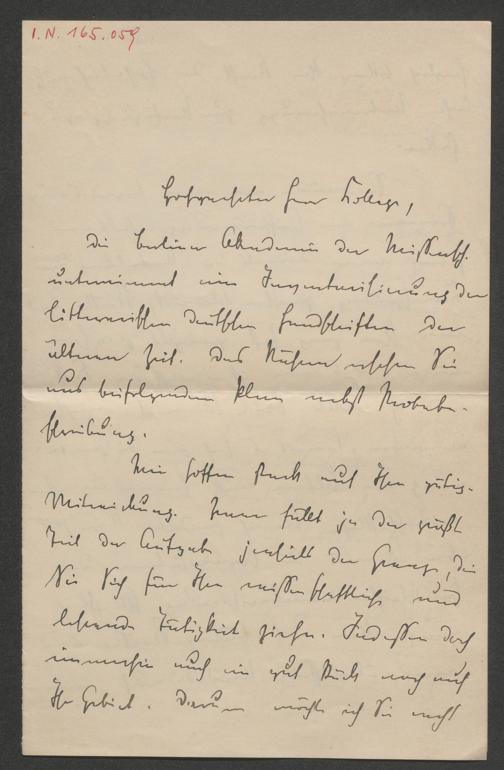 I.N. 165.059
Hochgeehrter Herr College,
die Berliner Akademie der Wissensch.
unternimmt eine Inventarisierung der
litterarischen deutschen Handschriften der
älteren Zeit. Das Nähere ersehen Sie
aus beifolgendem Plan nebst Probebe-
schreibung.
Wir hoffen stark auf Ihre gütige
Mitwirkung. Zwar fällt ja der größte
Teil der Aufgabe jenseits der Grenze, die
Sie Sich für Ihre wissenschaftliche und
lehrende Tätigkeit ziehn. Indessen doch
immerhin auch ein gut Stück noch auf
Ihr Gebiet. Darum möchte ich Sie nicht